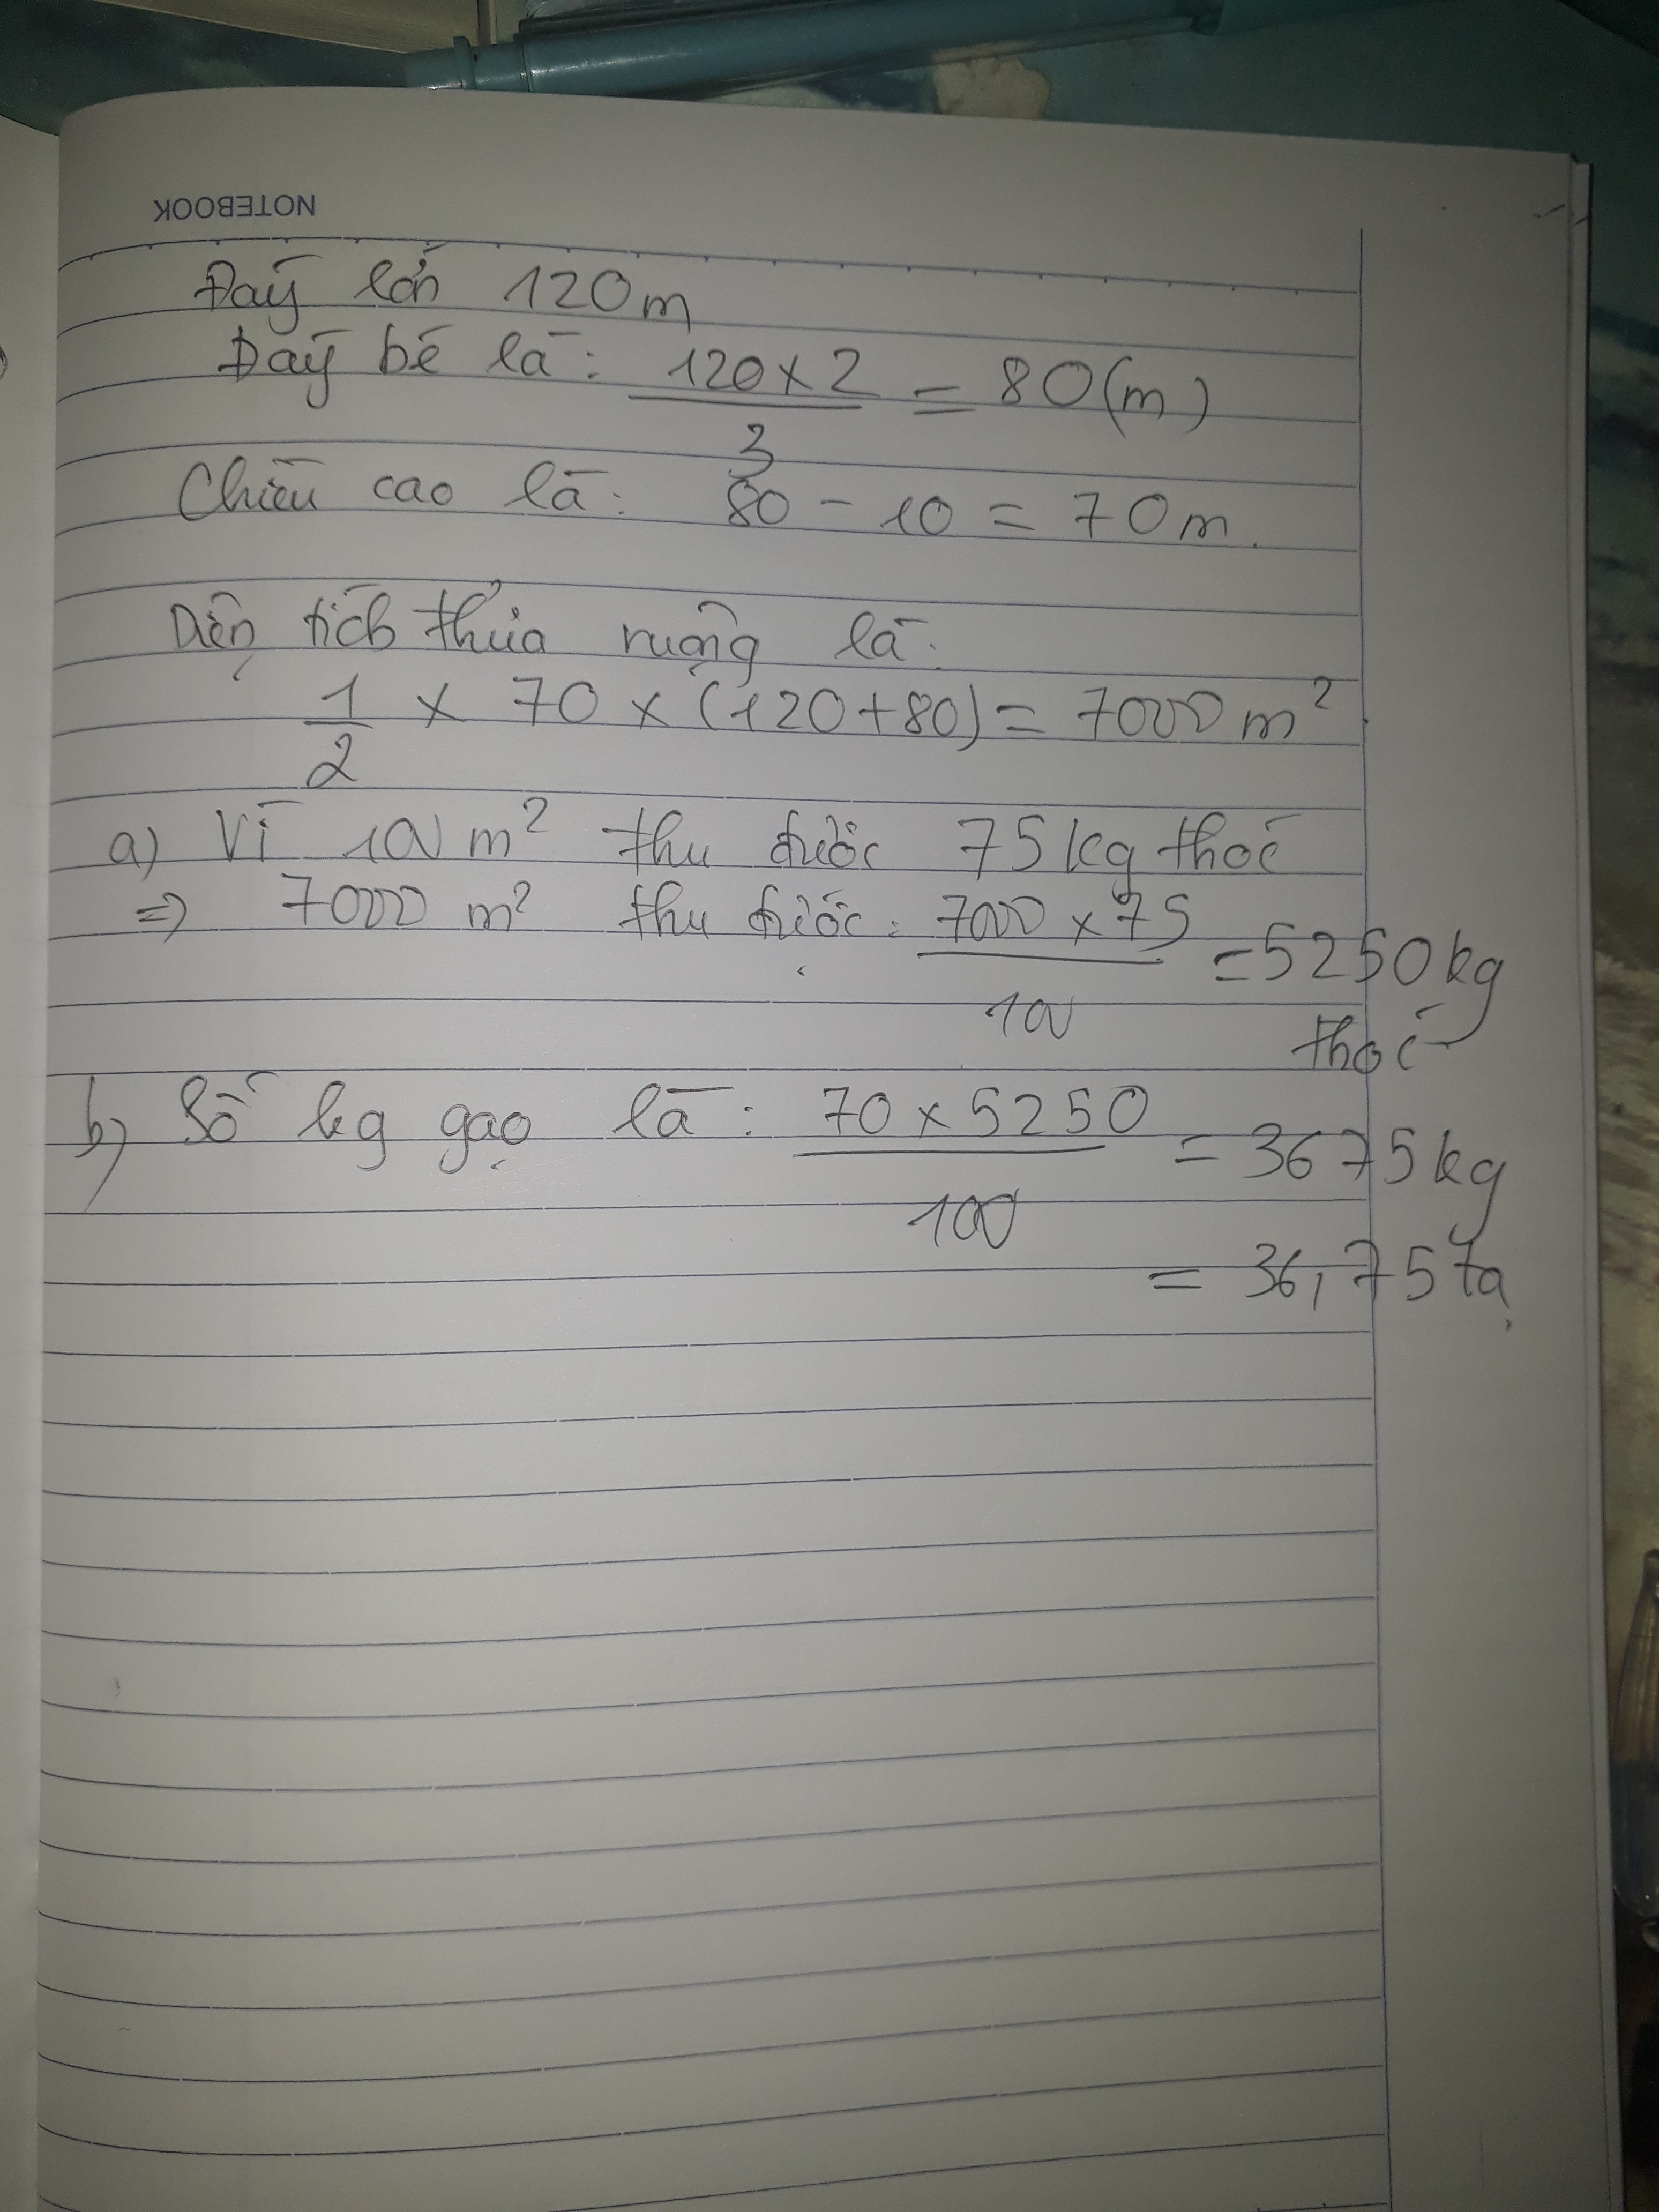 NOTEBOOK
Đáy lớn 120m
Đáy bé là: 120 x 2 / 3 = 80 (m)
Chiều cao là: 80 - 10 = 70 m.
Diện tích thửa ruộng là:
1/2 x 70 x (120+80) = 7000 m²
a) Vì 100 m² thu được 75 kg thóc
=> 7000 m² thu được: 7000 x 75 / 100 = 5250 kg
thóc
b) Số kg gạo là: 70 x 5250 / 100 = 3675 kg
= 36,75 tạ